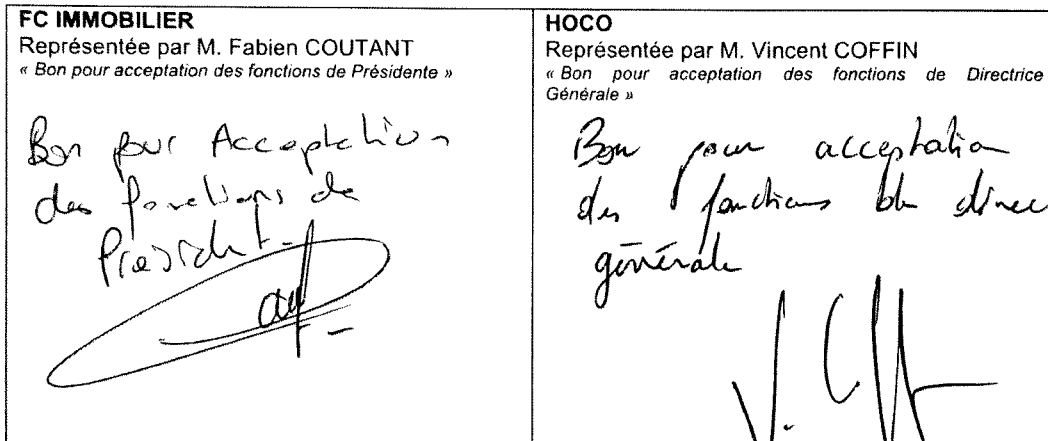 FC IMMOBILIER
Représentée par M. Fabien COUTANT
« Bon pour acceptation des fonctions de Présidente »
Bon pour Acceptation
des fonctions de
Président
HOCO
Représentée par M. Vincent COFFIN
« Bon pour acceptation des fonctions de Directrice
Générale »
Bon pour acceptation
des fonctions de direc
générale